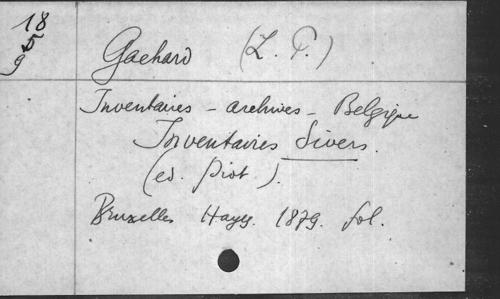 18
5
9
Gachard (L. P.)
Inventaires - archives - Belgique
Inventaires divers.
(ed. Piot).
Bruxelles Hayez. 1879. fol.